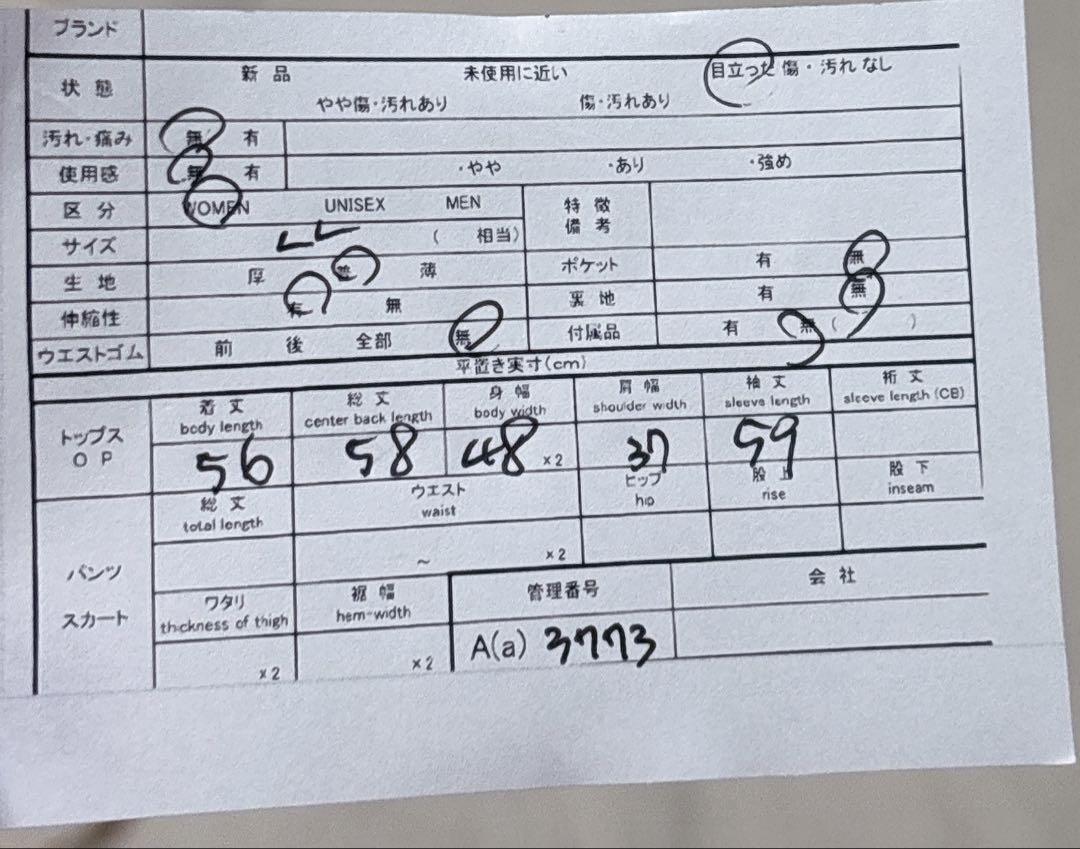 ブランド
状態 新品 未使用に近い 目立った傷・汚れなし
やや傷・汚れあり 傷・汚れあり
汚れ・痛み 無 有
使用感 無 有 ・やや ・あり ・強め
区分 WOMEN UNISEX MEN 特徴備考
サイズ LL ( 相当)
生地 厚 普 薄 ポケット 有 無
伸縮性 有 無 裏地 有 無
ウエストゴム 前 後 全部 無 付属品 有 無 ( )
平置き実寸(cm)
トップス OP
着丈 総丈 身幅 肩幅 袖丈 裄丈
body length center back length body width shoulder width sleeve length sleeve length (CB)
56 58 48 ×2 37 59
パンツ スカート
総丈 ウエスト ヒップ 股上 股下
total length waist hip rise inseam
~ ×2
ワタリ 裾幅 管理番号 会社
thickness of thigh hem-width
×2 ×2 A(a) 3773